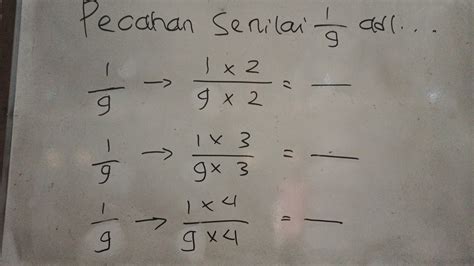 Pecahan Senilai 1/9 adl...
1/9 → 1 x 2 / 9 x 2 = —
1/9 → 1 x 3 / 9 x 3 = —
1/9 → 1 x 4 / 9 x 4 = —